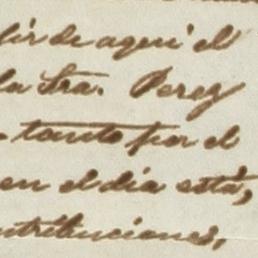 de aqui el
la Sra. Perez
tanto por el
en el dia está,
ntribuciones,